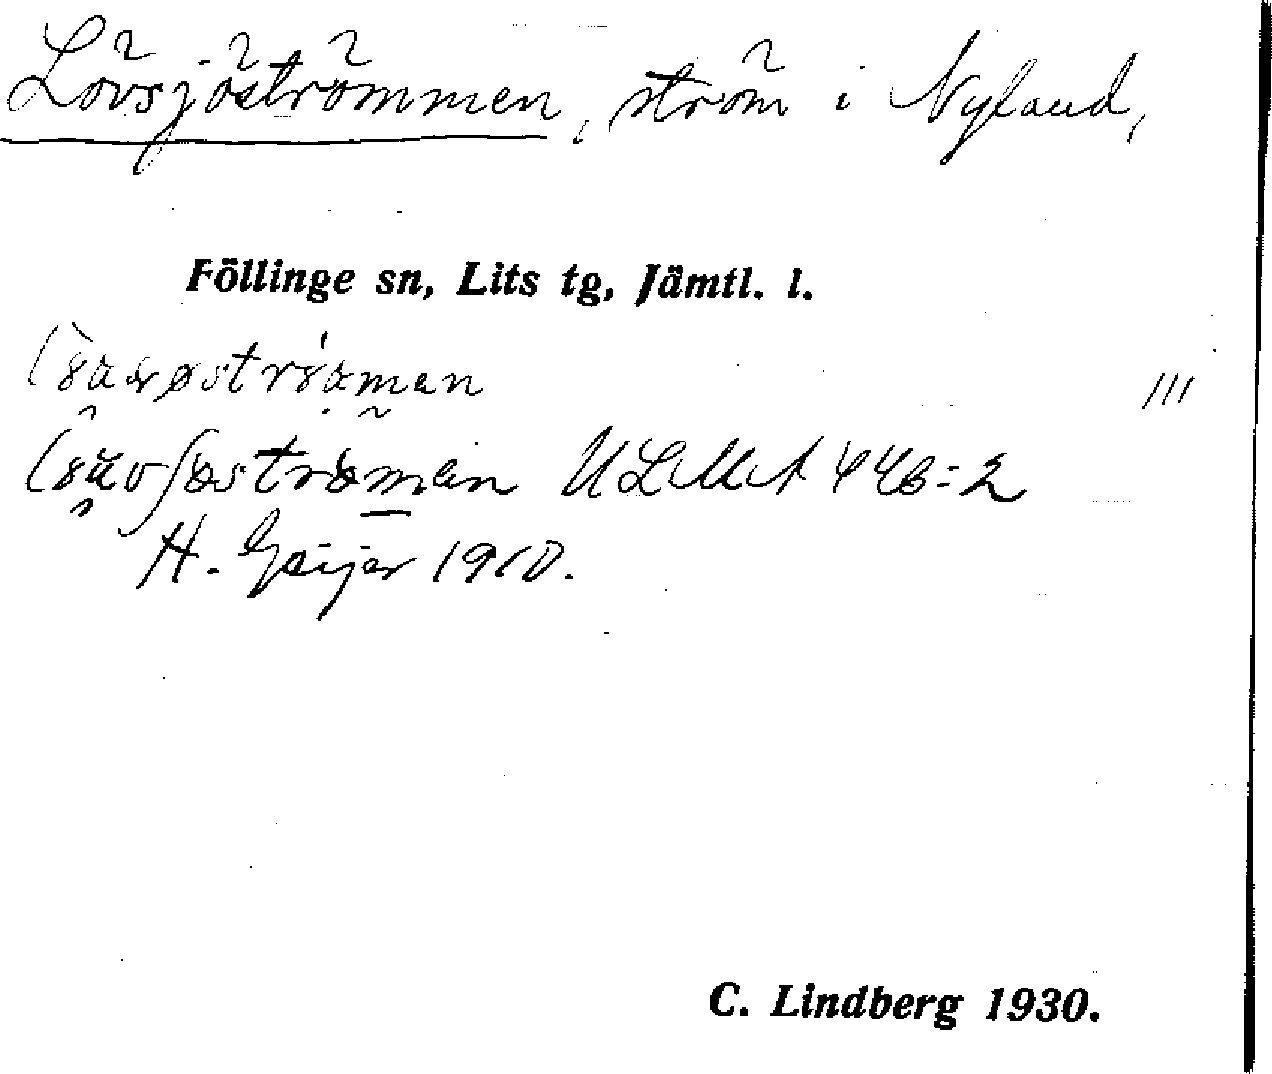 Lövsjöströmmen, ström i Nyland,
Föllinge sn, Lits tg, Jämtl. l.
III
ULMA 446:2
H. Geijer 1910.
C. Lindberg 1930.